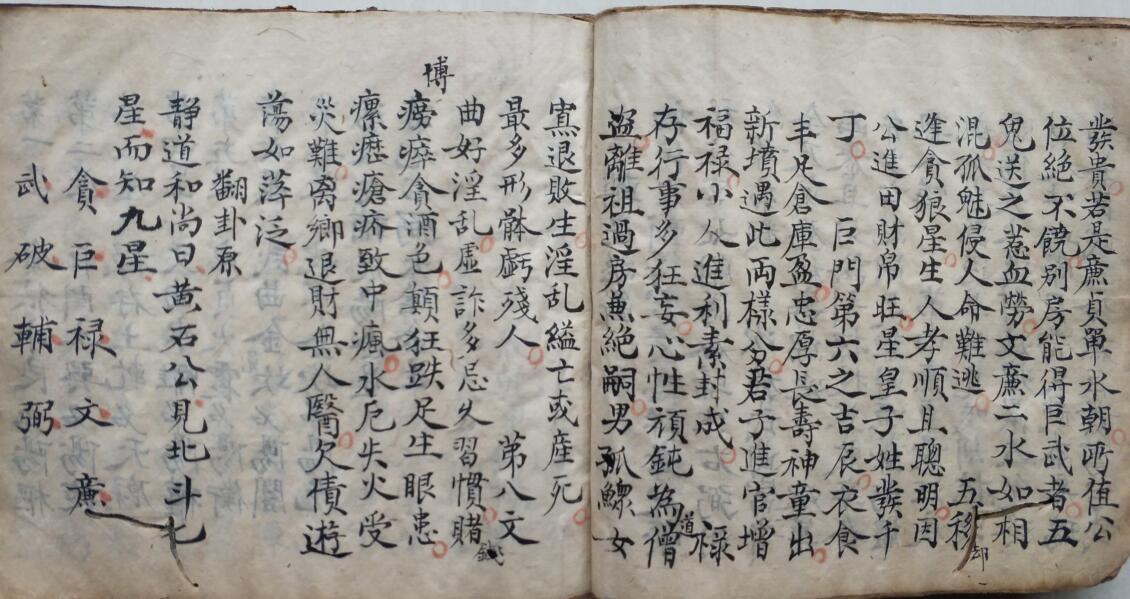 發貴若是廉貞單水朝所值公
位絕不饒別房能得巨武者五
鬼送之惹血勞文廉二水如相
混孤魅侵人命難逃　五移却
逢貪狼星生人孝順且聰明因
公進田財帛旺星皇子姓發千
丁　巨門第六之吉辰衣食
丰足倉庫盈忠厚長壽神童出
新墳遇此両樣分君子進官增
福禄小人進利素封成　禄
存行事多狂妄心性頑鈍為僧道
盗離祖過房兼絕嗣男孤鰥女
寡退敗生淫乱縊亡或產死
最多形骵虧殘人　第八文
曲好淫乱虛詐多忌久習慣賭錢
博
癆瘵貪酒色顛狂跌足生眼患
瘰癧瘡疥致中瘋水厄失火受
災難离鄉退財無人醫欠債遊
蕩如萍泛
翻卦原
静道和尚曰黄石公見北斗七
星而知九星
貪　巨　禄　文　廉
武　破　輔　弼